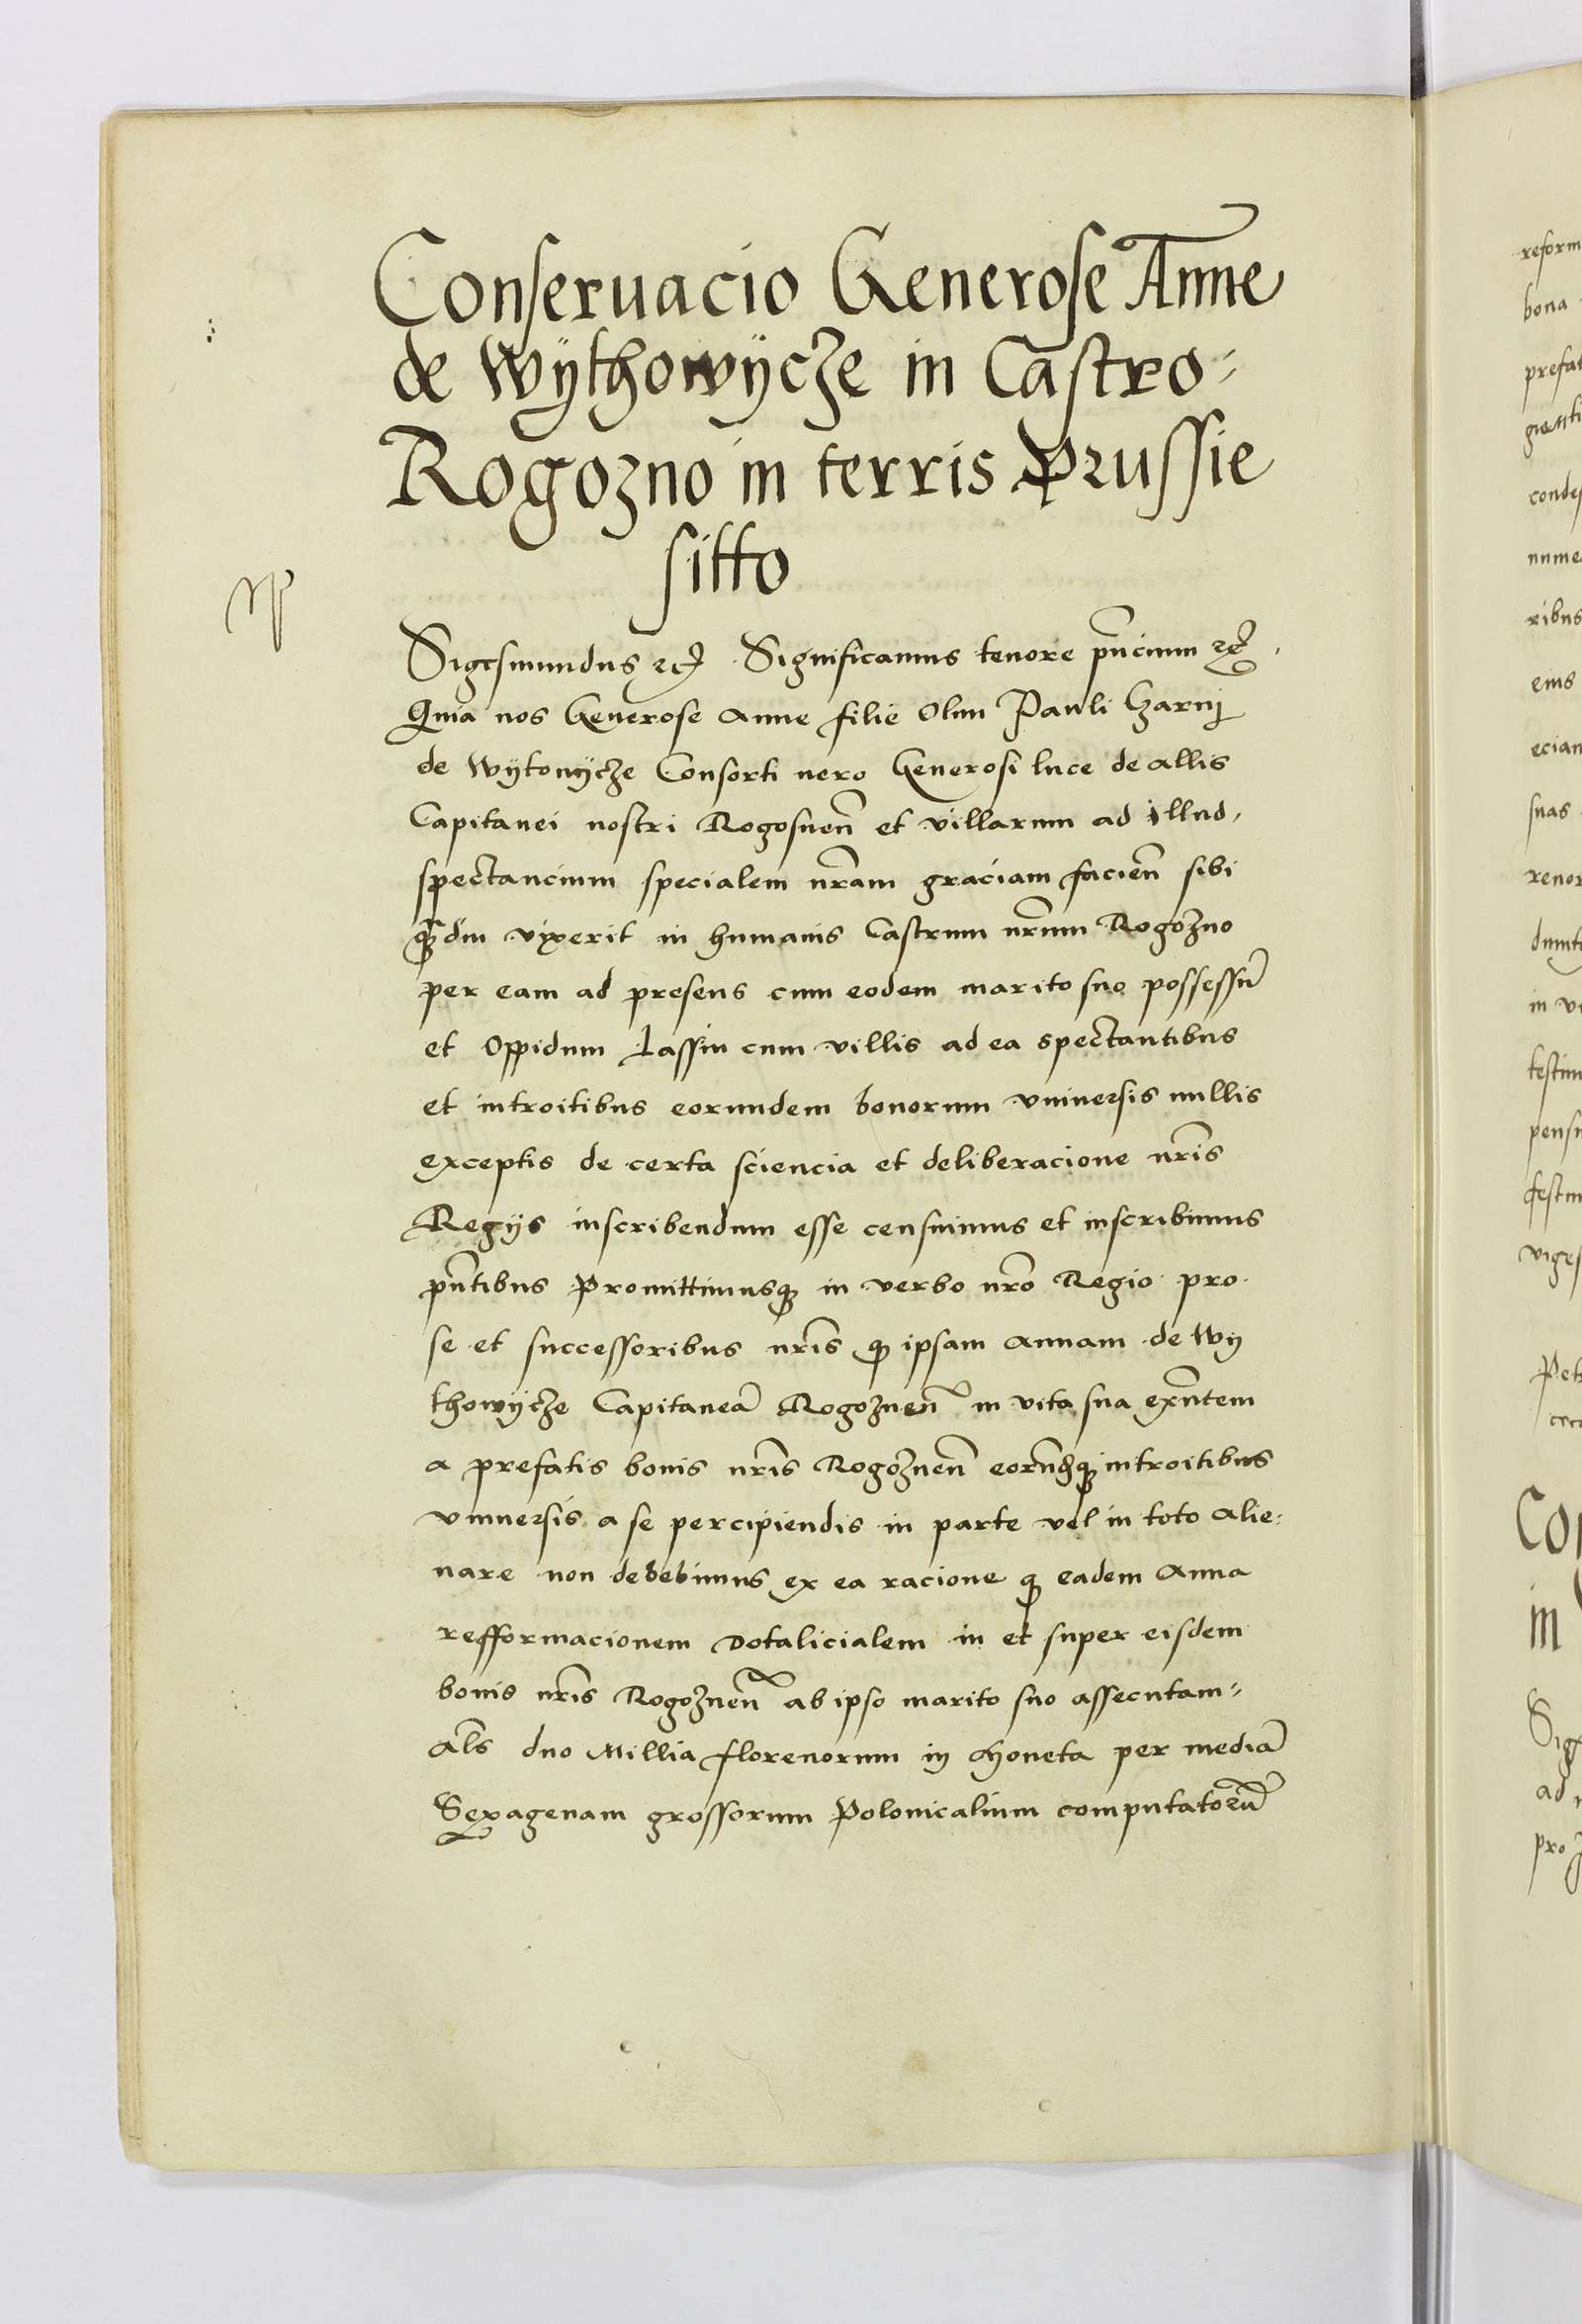 Conseruacio Generose Anne
de Wÿthowÿcze in Castro
Rogozno in terris Prussie
sitto
Sigismundus etc Significamus tenore pñcium etc
Quia nos Generose Anne filie Olim Pauli Czarnÿ
de Wÿtowÿcze Consorti vero Generosi luce de allis
Capitanei nostri Rogosneñ et villarum ad illud
spectancium specialem nr̃am graciam facieñ sibi
q̃ʒdiu vixerit in humanis Castrum nr̃um Rogozno
per eam ad presens cum eodem marito suo possessũ
et Oppidum Lassin cum villis ad ea spectantibus
et introitibus eorundem bonorum vniuersis nullis
exceptis de certa sciencia et deliberacione nr̃is
Regÿs inscribendum esse censuimus et inscribimus
pñtibus Promittimusqʒ in verbo nr̃o Regio pro
se et successoribus nr̃is qʒ ipsam annam de Wÿ
thowÿcze Capitaneã Rogozneñ in vita sua exñtem
a prefatis bonis nr̃is Rogozneñ eorũdqʒ introitibus
vniuersis a se percipiendis in parte vel in toto alie-
nare non debebimus ex ea racione qʒ eadem Anna
refformacionem dotalicialem in et super eisdem
bonis nr̃is Rogozneñ ab ipso marito suo assecutam
al̃s duo Millia florenorum in Moneta per mediã
Sexagenam grossorum Polonicalium computatorũ